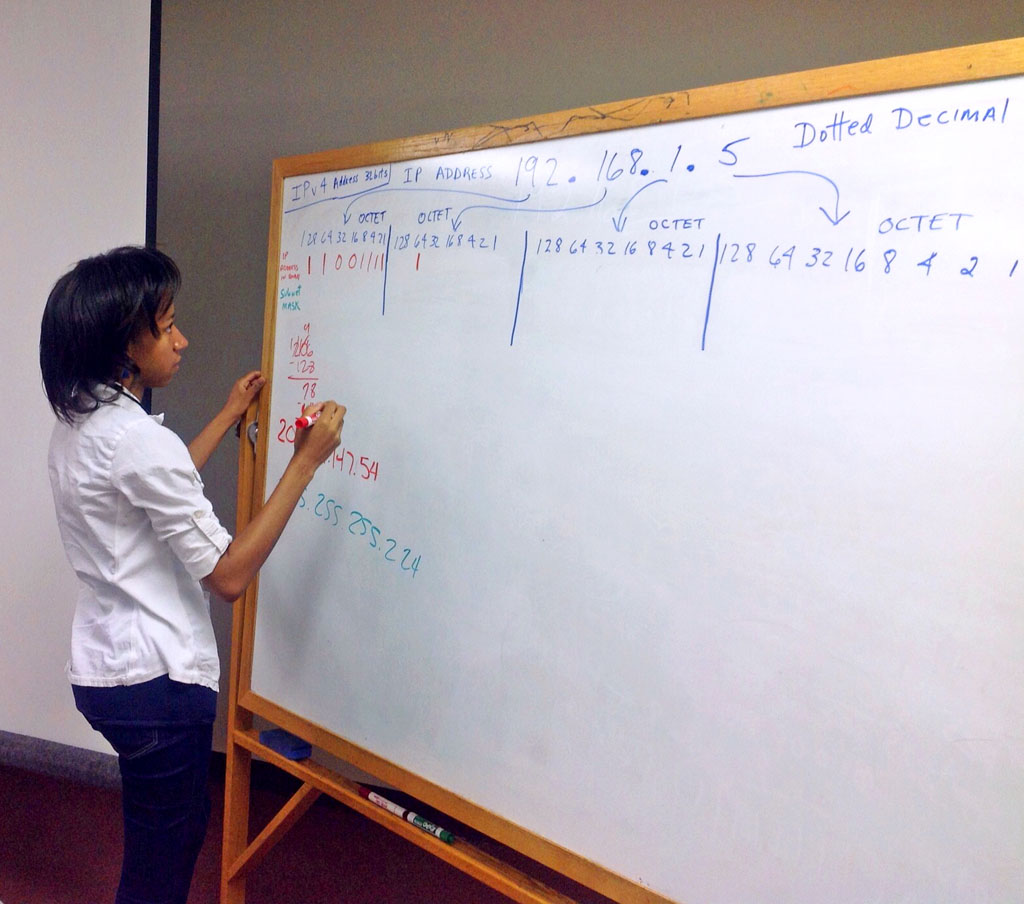 Dotted Decimal
IPv4 Address 32 bits IP ADDRESS 192.168.1.5
OCTET OCTET OCTET OCTET
128 64 32 16 8 4 2 1 128 64 32 16 8 4 2 1 128 64 32 16 8 4 2 1 128 64 32 16 8 4 2 1
IP ADDRESS 1 1 0 0 1 1 1 1 1
Subnet
MASK
-128
78
20
.147.54
.255.255.224